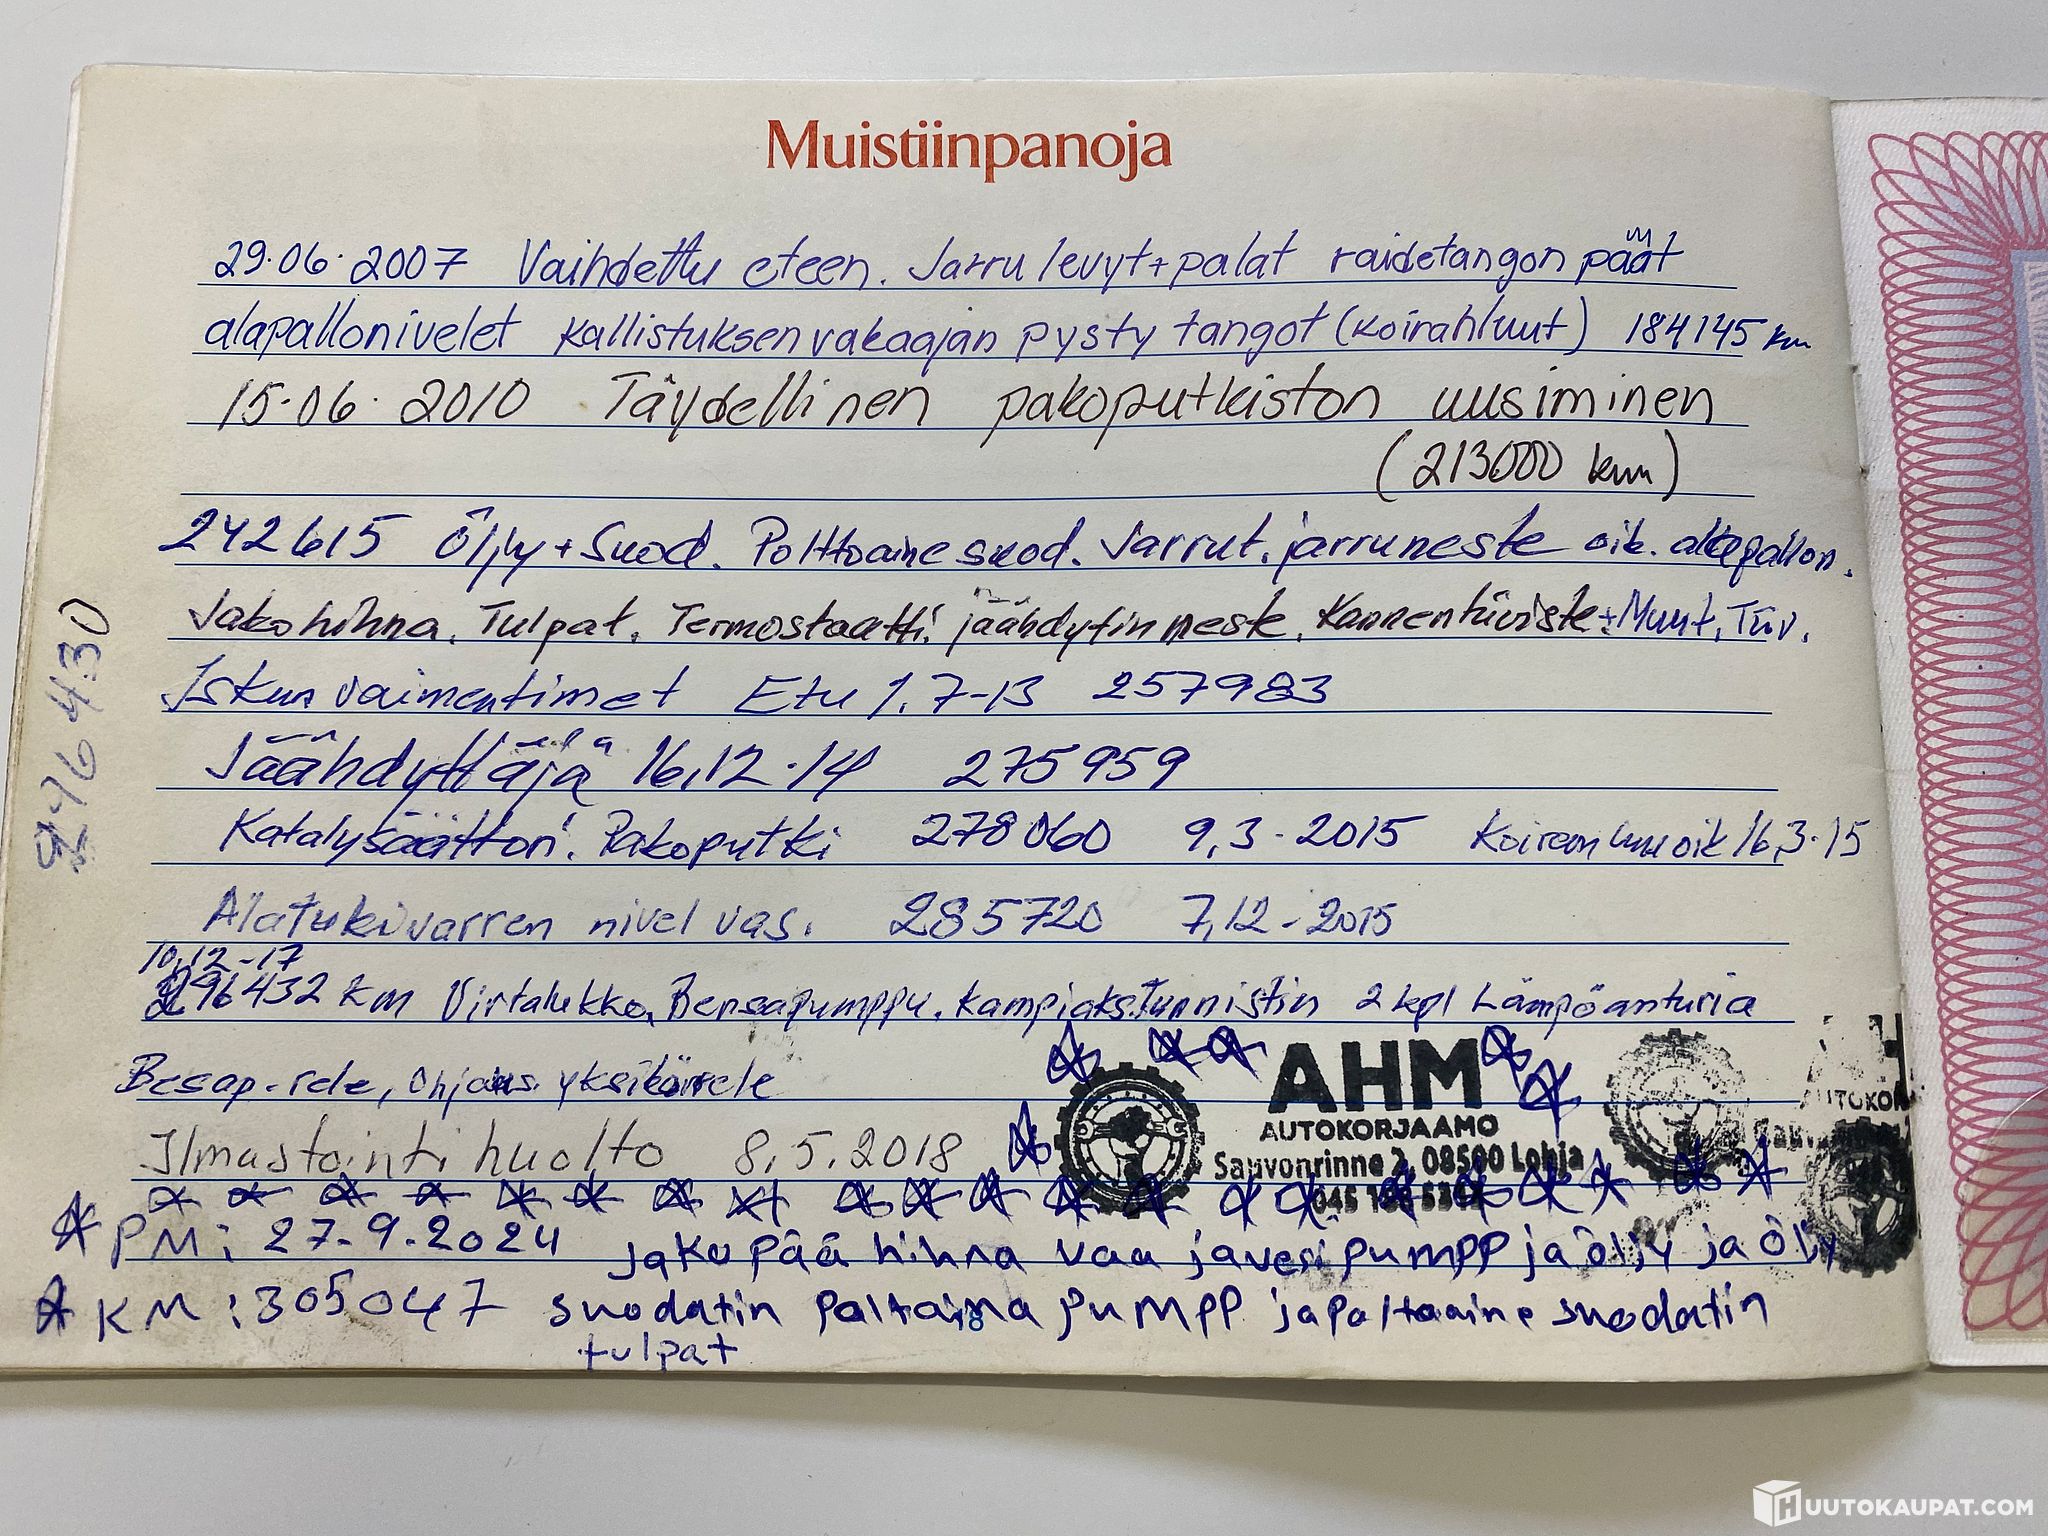 Muistiinpanoja
29.06.2007 Vaihdettu eteen. Jarru levyt+palat raidetangon päät
alapallonivelet kallistuksen vakaajan pysty tangot (koirahluut) 184145 km
15.06.2010 Täydellinen pakoputkiston uusiminen
(213000 km)
242615 Öljy + Suod. Polttoaine suod. Jarrut. jarruneste oik. alapallon.
Jakohihna. Tulpat. Termostaatti. jäähdytin neste. Kannentiiviste + Muut. Tiiv.
Iskun vaimentimet Etu 1.7-13 257983
Jäähdyttäjä 16.12.14 275959
Katalysaattori. Pakoputki 278060 9,3-2015 Koiran luu oik 16,3-15
Alatukivarren nivel vas. 285720 7,12-2015
10,12-17
296432 km Virtalukko, Bensapumppu. Kampiaks.Tunnistin 2 kpl Lämpöanturia
Besap-rele, Ohjaus. yksikönrele
Ilmastointi huolto 8.5.2018
AHM
AUTOKORJAAMO
Sauvonrinne 2, 08500 Lohja
045
PM: 27-9.2024 Jako pää hihna vaa javesi pumpp ja öljy ja öljy
KM: 305047 suodatin paltaina pumpp ja paltaaine suodatin
tulpat
HUUTOKAUPAT.COM